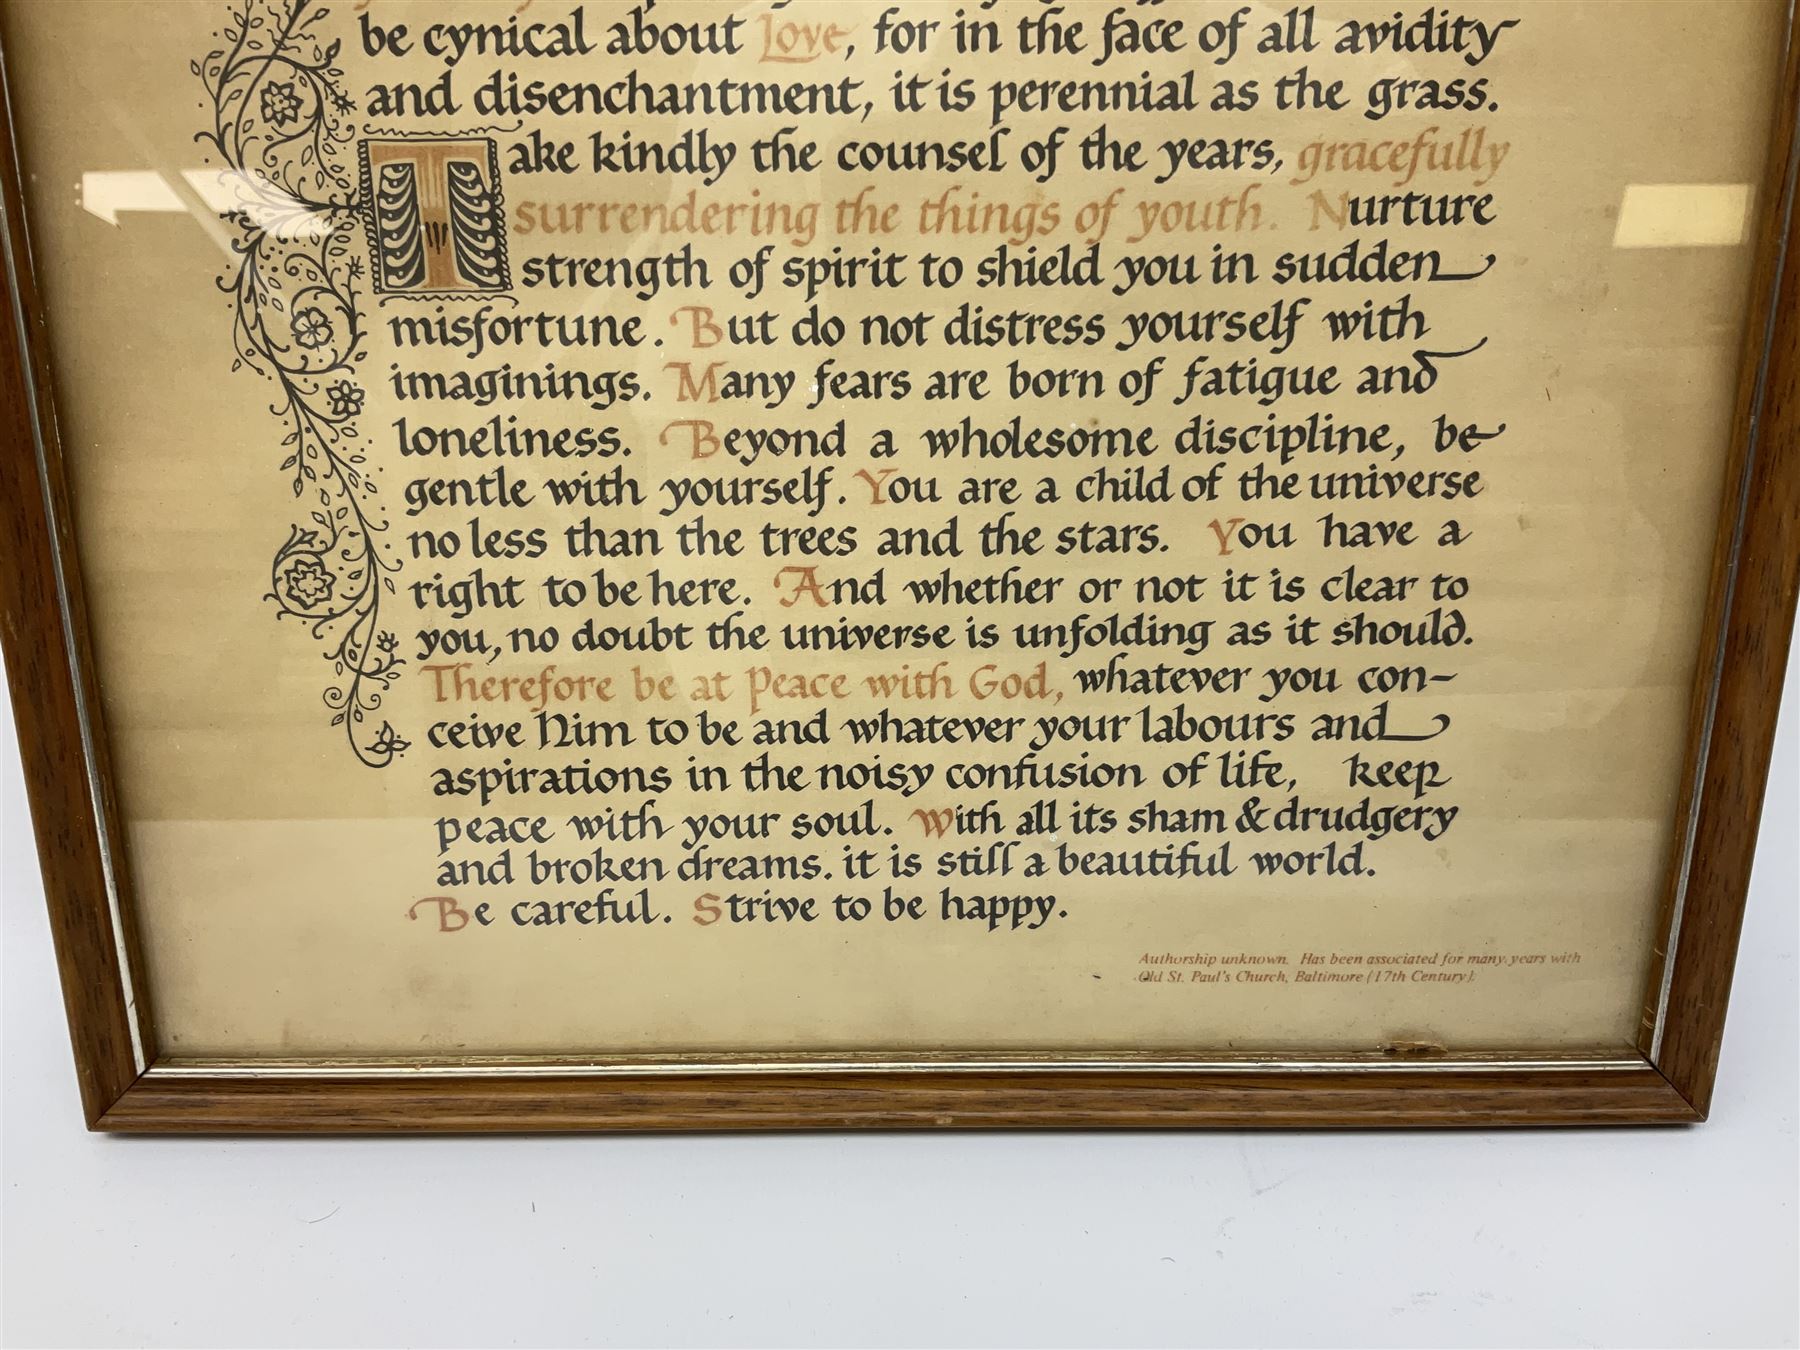 be cynical about Love, for in the face of all avidity
and disenchantment, it is perennial as the grass.
Take kindly the counsel of the years, gracefully
surrendering the things of youth. Nurture
strength of spirit to shield you in sudden
misfortune. But do not distress yourself with
imaginings. Many fears are born of fatigue and
loneliness. Beyond a wholesome discipline, be
gentle with yourself. You are a child of the universe
no less than the trees and the stars. You have a
right to be here. And whether or not it is clear to
you, no doubt the universe is unfolding as it should.
Therefore be at peace with God, whatever you con-
ceive Him to be and whatever your labours and
aspirations in the noisy confusion of life, keep
peace with your soul. With all its sham & drudgery
and broken dreams. it is still a beautiful world.
Be careful. Strive to be happy.
Authorship unknown. Has been associated for many years with
Old St. Paul's Church, Baltimore (17th Century).